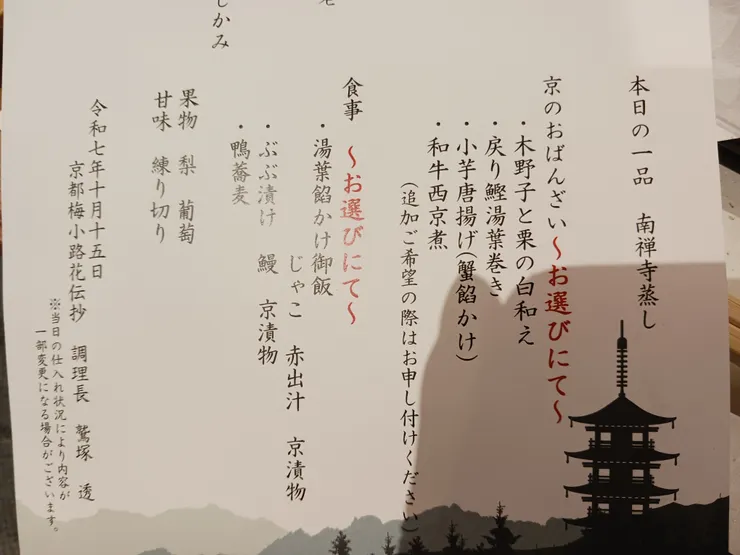 本日の一品　南禅寺蒸し
京のおばんざい～お選びにて～
・木野子と栗の白和え
・戻り鰹湯葉巻き
・小芋唐揚げ(蟹餡かけ)
・和牛西京煮
(追加ご希望の際はお申し付けください)
食事　～お選びにて～
・湯葉餡かけ御飯
じゃこ　赤出汁　京漬物
・ぶぶ漬け　鰻　京漬物
・鴨蕎麦
しかみ
果物　梨　葡萄
甘味　練り切り
令和七年十月十五日
京都梅小路花伝抄　調理長　鷲塚　透
※当日の仕入れ状況により内容が
一部変更になる場合がございます。